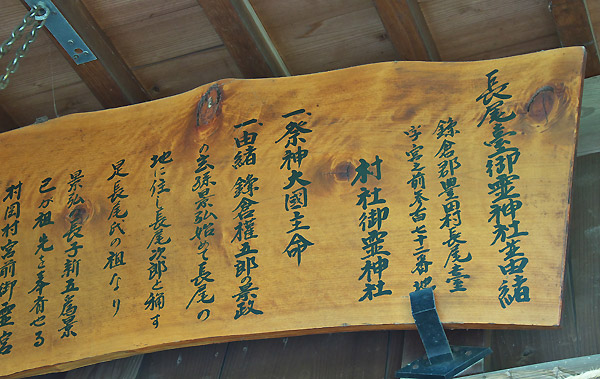 長尾臺御靈神社由緒
鎌倉郡豊田村長尾臺
字宮之前参百七十二番地
村社御靈神社
一、祭神大國主命
一、由緒 鎌倉權五郎景政
の玄孫景弘始めて長尾の
地に住し長尾次郎と稱す
足長尾氏の祖なり
景弘の長子新五爲景
己が祖先と奉斉せる
村岡村宮前御靈宮